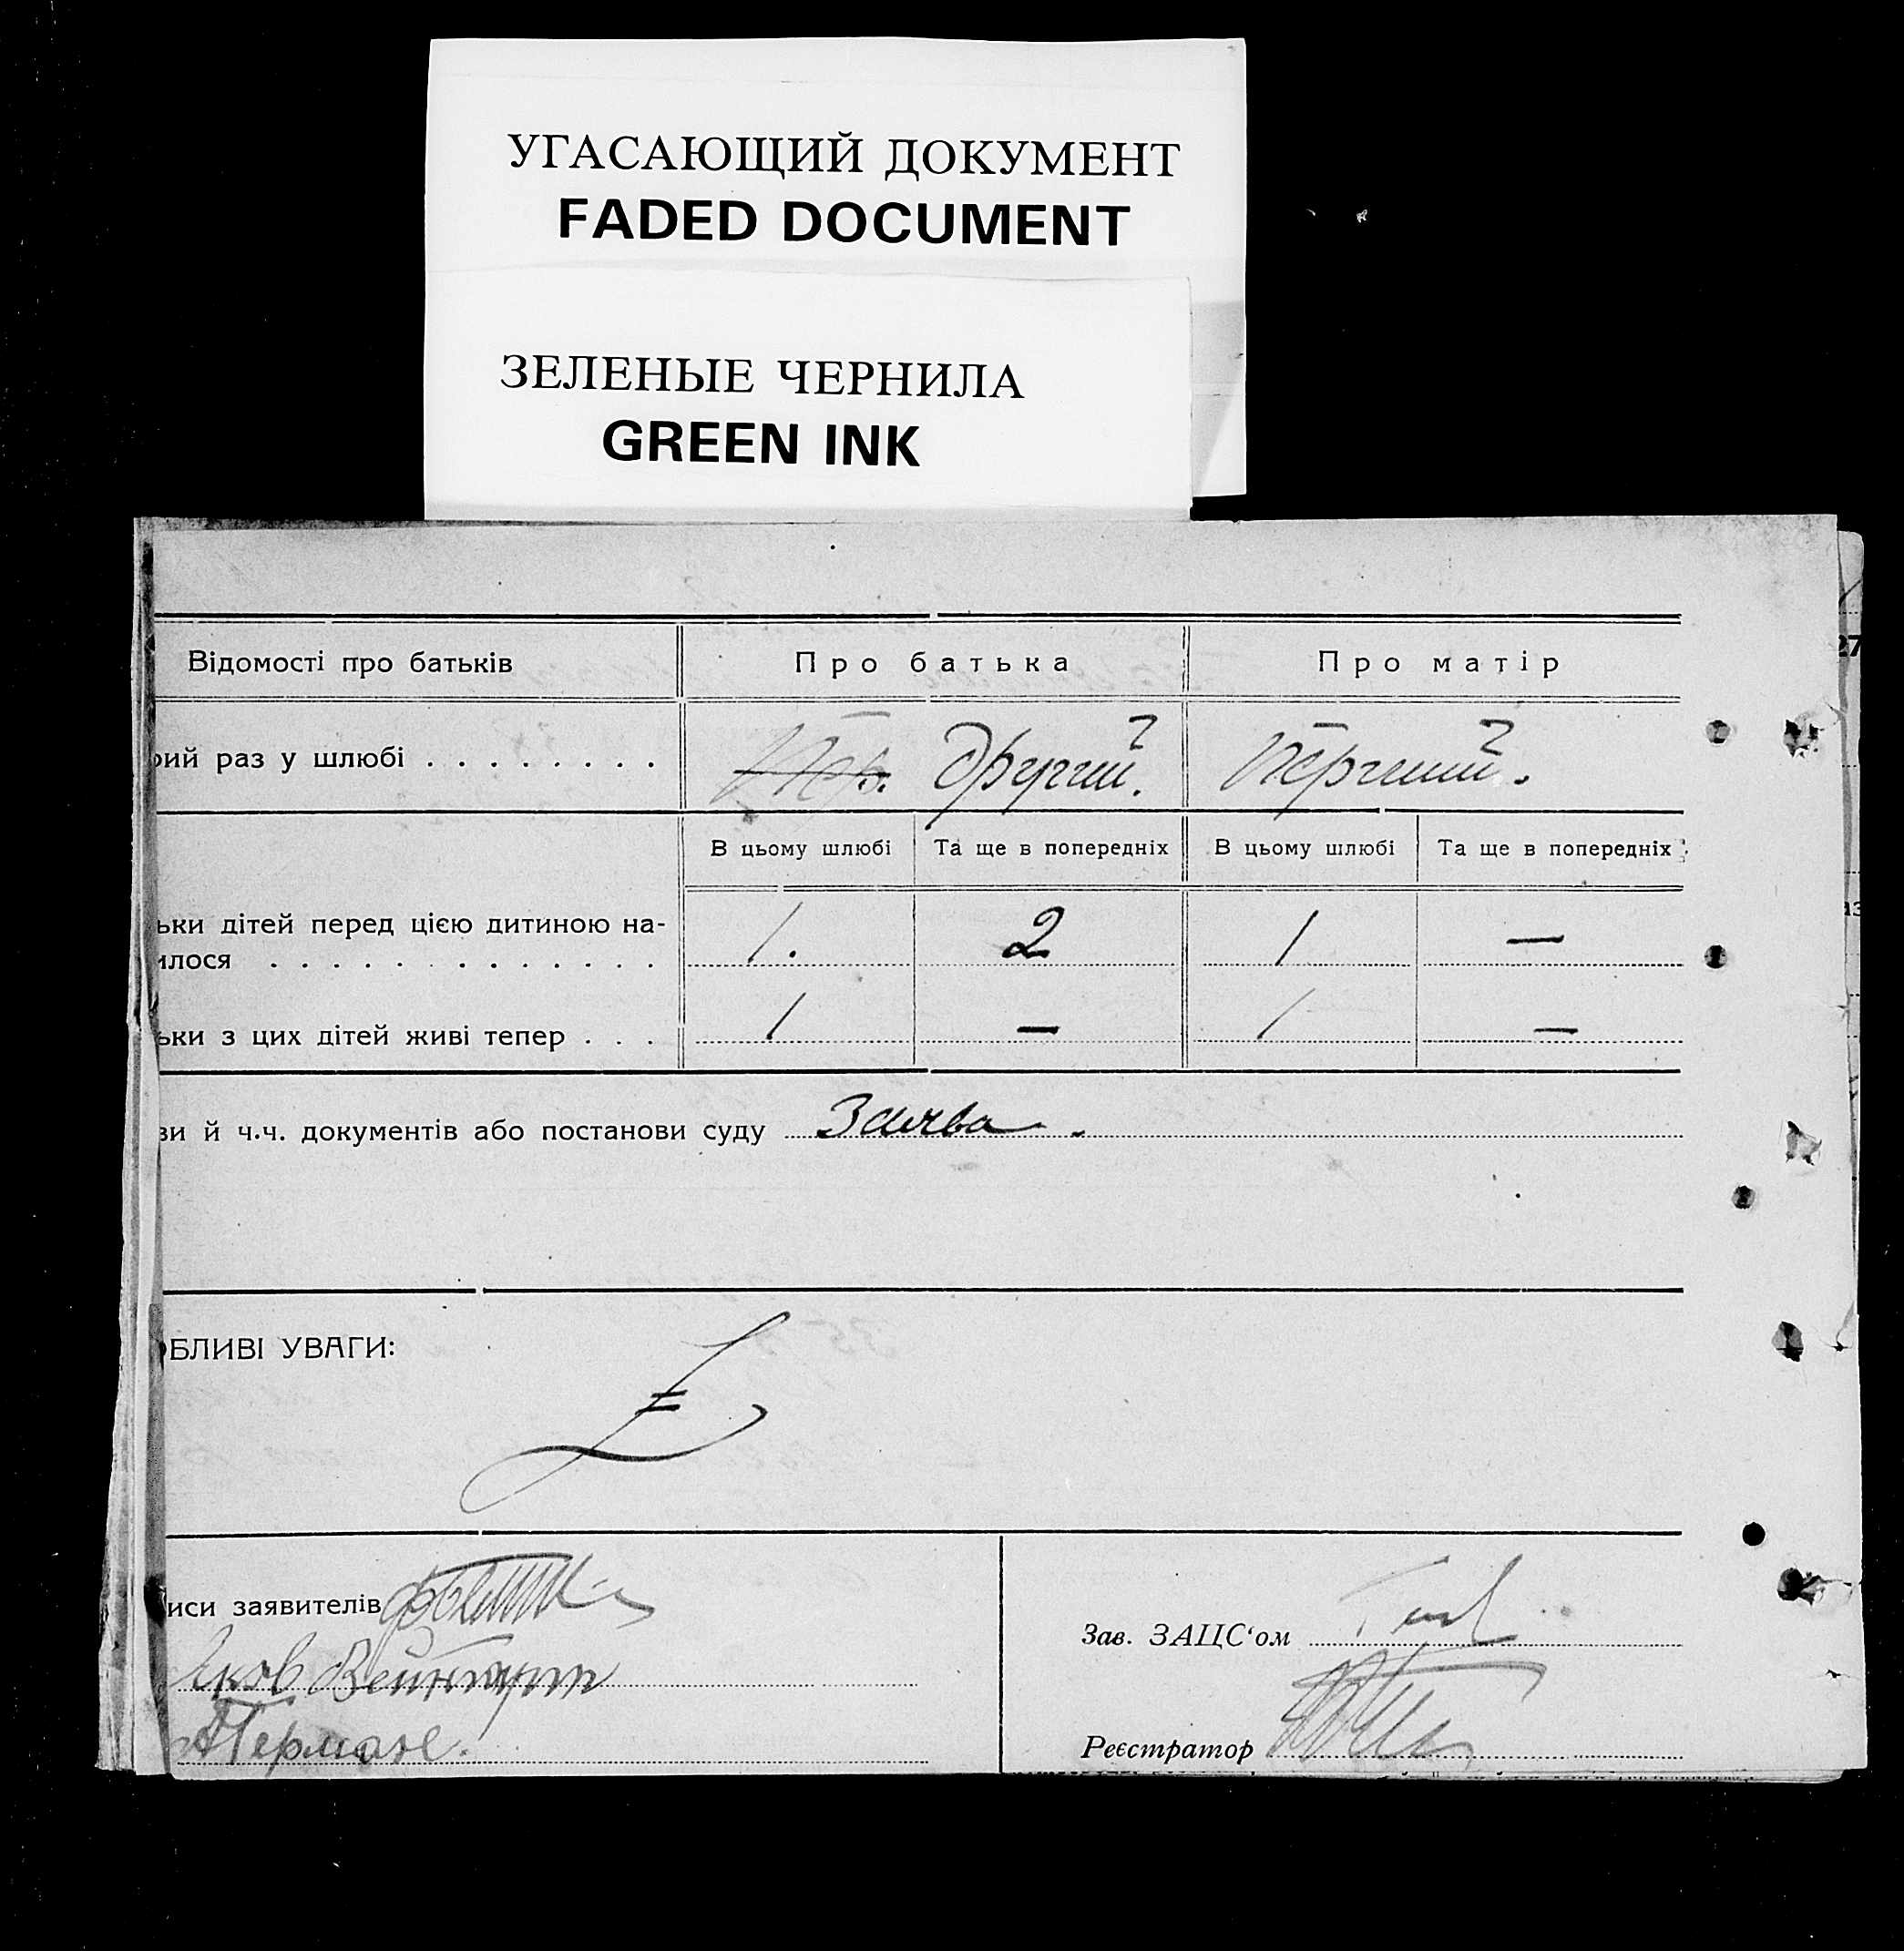 УГАСАЮЩИЙ ДОКУМЕНТ
FADED DOCUMENT
ЗЕЛЕНЫЕ ЧЕРНИЛА
GREEN INK
Відомості про батьків Про батька Про матір
рий раз у шлюбі . . . . . . . . Пер. другий. Перший.
В цьому шлюбі Та ще в попередніх В цьому шлюбі Та ще в попередніх
ьки дітей перед цією дитиною на-
илося . . . . . . . . . . . . . 1. 2 1 —
ьки з цих дітей живі тепер . . . 1 — 1 —
ви й ч.ч. документів або постанови суду Заява.
ОБЛИВІ УВАГИ:
иси заявителів
Яков Вейнтруб
Зав. ЗАЦС‘ом
Герман
Реєстратор
27